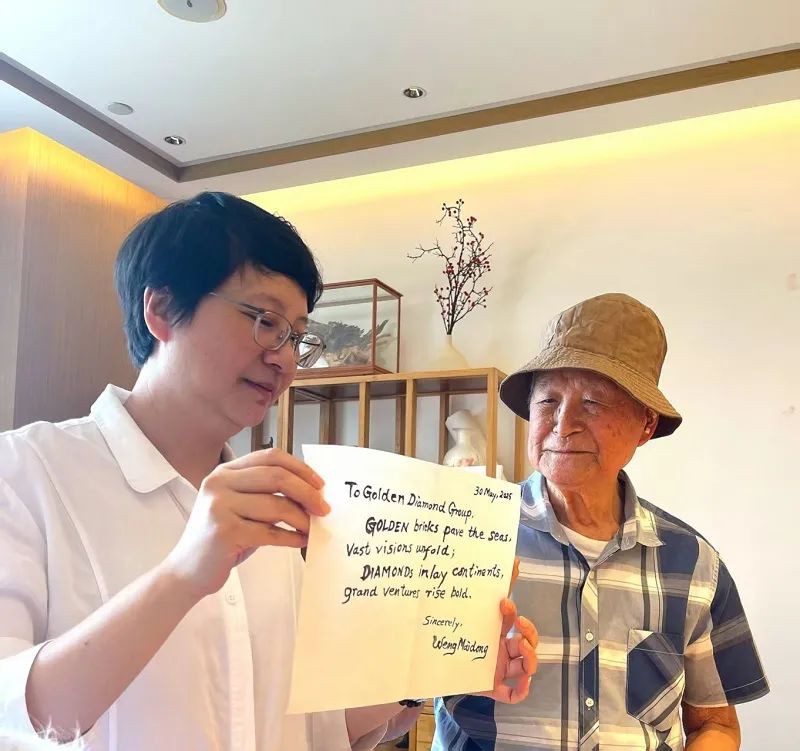 30 May, 2025
To Golden Diamond Group,
GOLDEN bricks pave the seas,
Vast visions unfold;
DIAMONDs inlay continents,
grand ventures rise bold.
Sincerely,
Weng Maidong